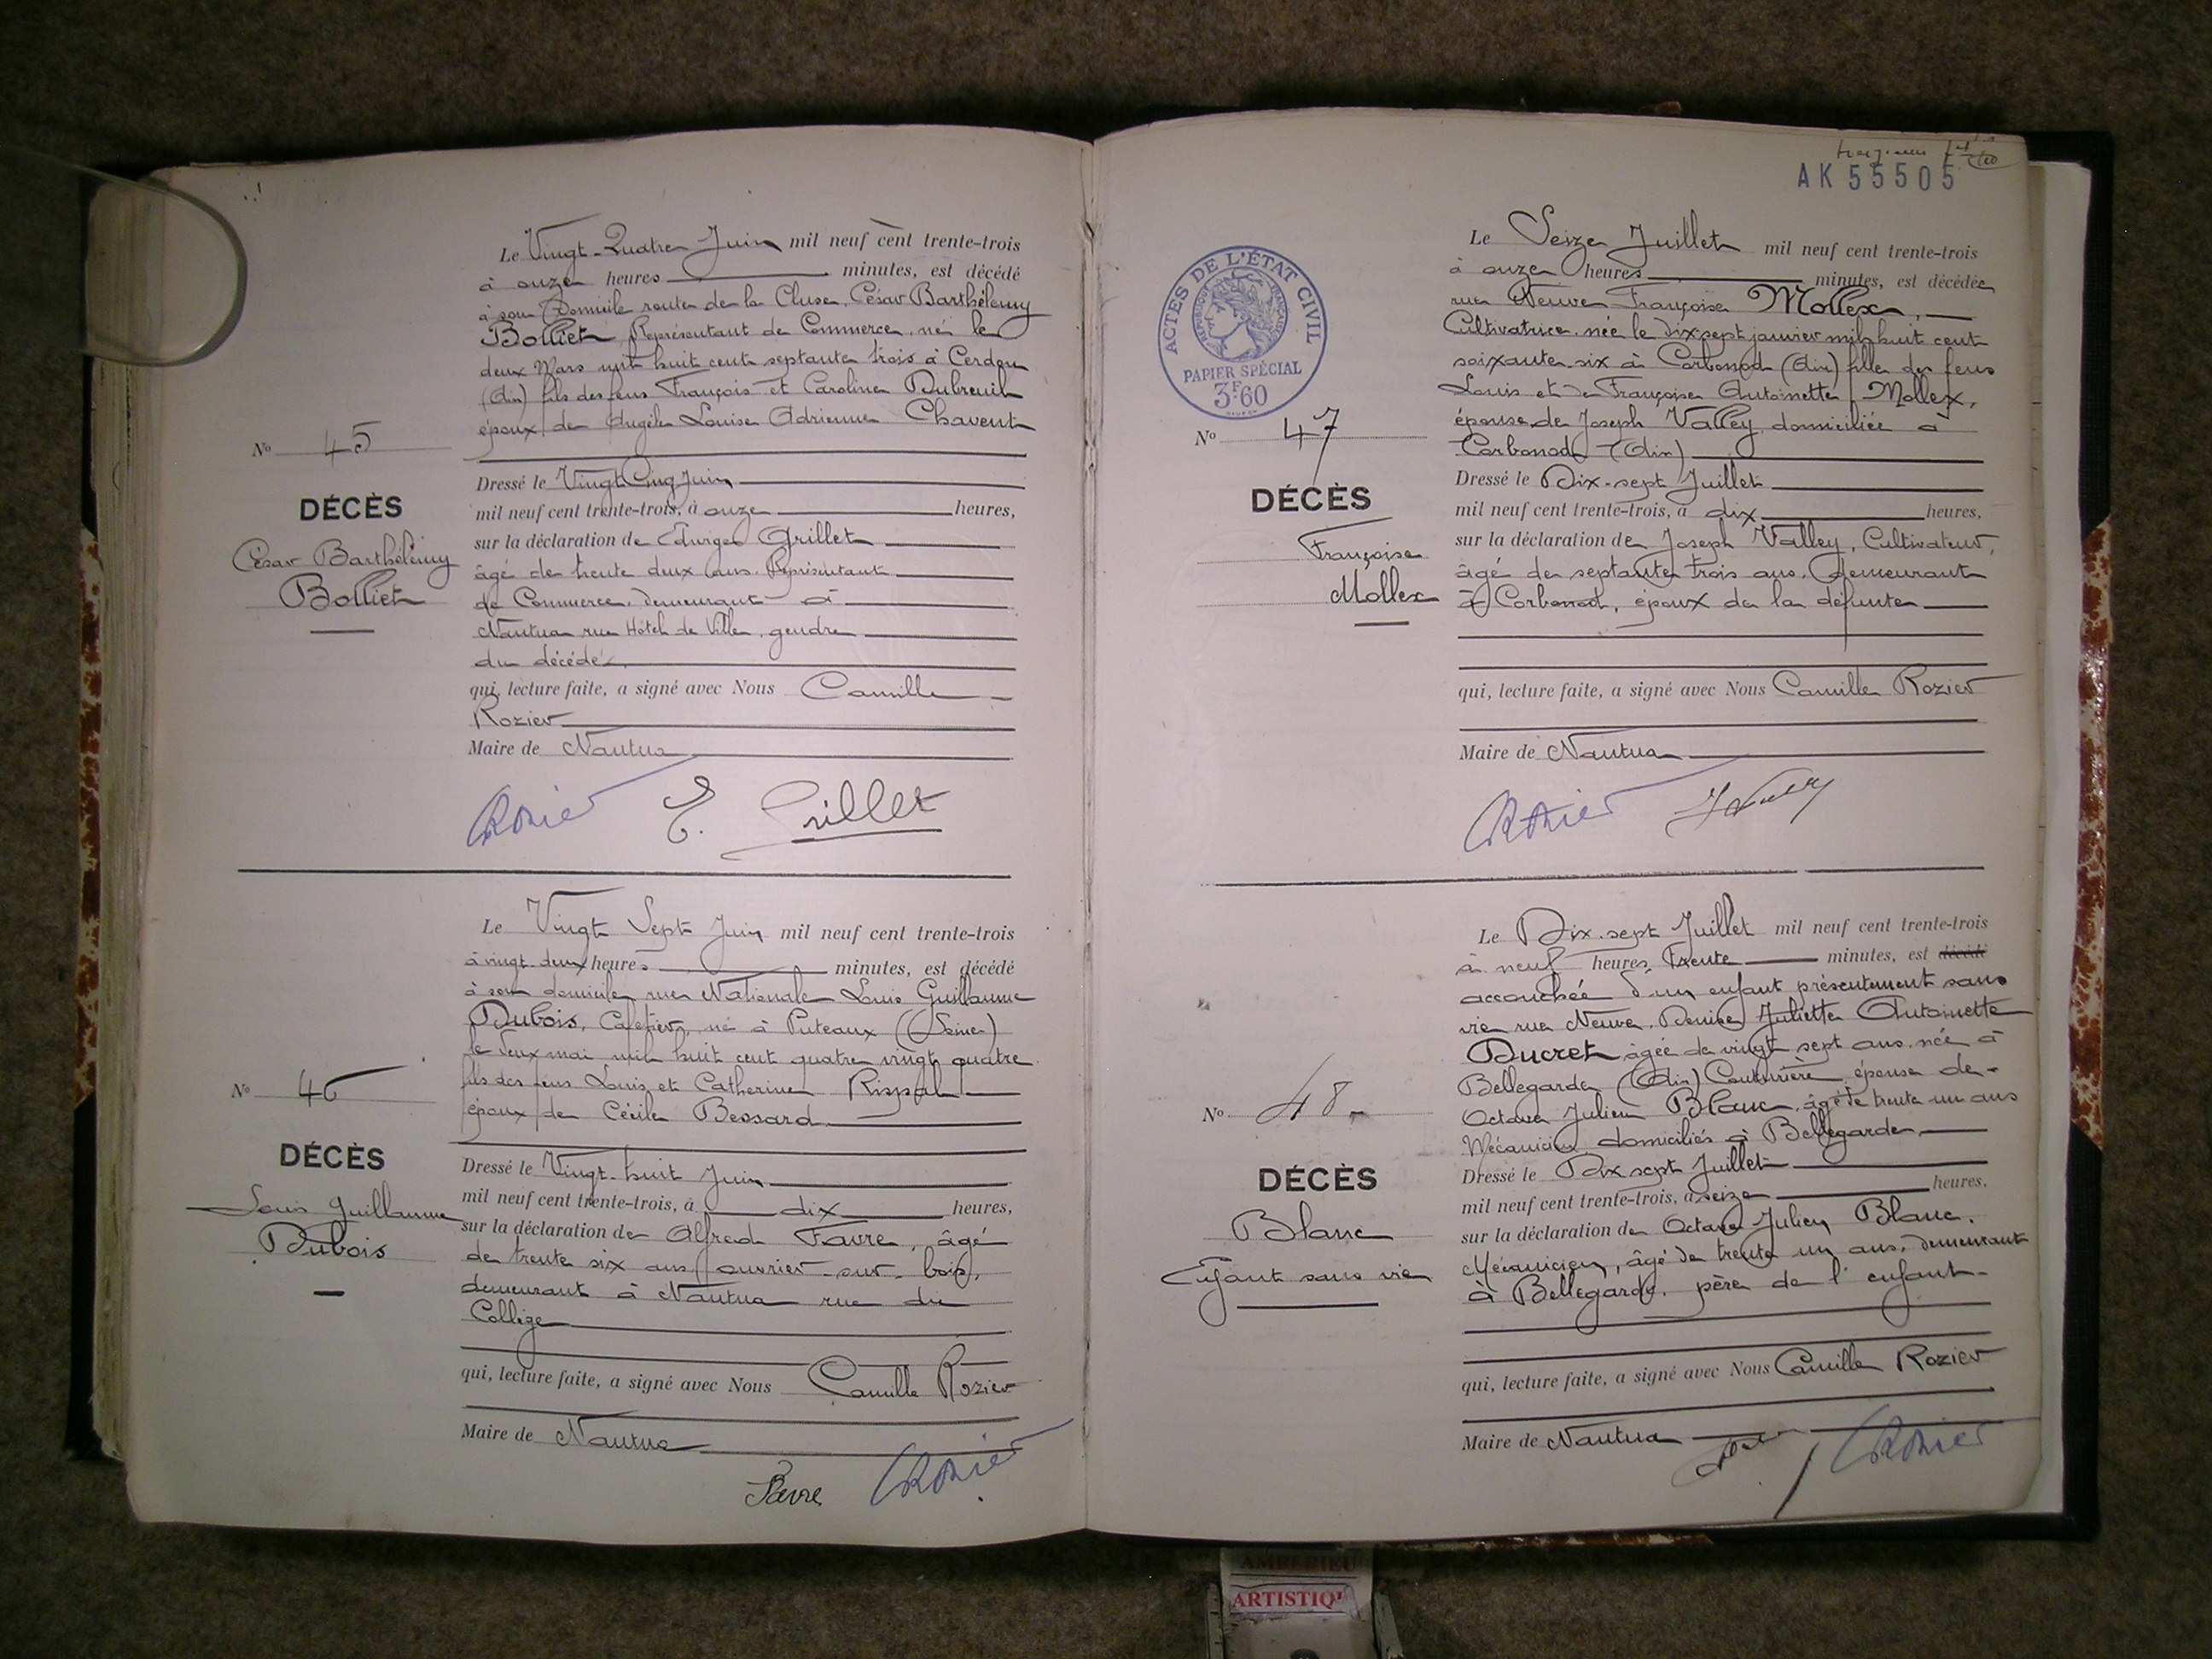 Le Vingt-Quatre Juin mil neuf cent trente-trois
à onze heures minutes, est décédé
à son Domicile route de la Cluse, César Barthélemy
Bolliet, Représentant de Commerce, né le
deux Mars mil huit cent septante trois à Cerdon
(Ain) fils des feus François et Caroline Dubreuil
époux de Angèle Louise Adrienne Chavent
No 45
DÉCÈS
César Barthélemy
Bolliet
Dressé le Vingt Cinq Juin
mil neuf cent trente-trois, à onze heures,
sur la déclaration de Grillet
âgé de trente deux ans. Représentant
de Commerce, demeurant à
Nantua rue Hôtel de Ville, gendre
du décédé,
qui, lecture faite, a signé avec Nous Camille
Rozier
Maire de Nantua
CRozier E. Grillet
Le Vingt Sept Juin mil neuf cent trente-trois
à vingt deux heures minutes, est décédé
à son domicile rue Nationale Louis Guillaume
Dubois, Cafetier, né à Puteaux (Seine)
le deux mai mil huit cent quatre vingt quatre
fils des feus Louis et Catherine Rispal
époux de Cécile Bessard
No 46
DÉCÈS
Louis Guillaume
Dubois
Dressé le Vingt-huit Juin
mil neuf cent trente-trois, à dix heures,
sur la déclaration de Alfred Favre, âgé
de trente six ans, ouvrier-sur-bois,
demeurant à Nantua rue du
Collège
qui, lecture faite, a signé avec Nous Camille Rozier
Maire de Nantua
Favre CRozier
AK 55505
ACTES DE L'ÉTAT CIVIL
RÉPUBLIQUE FRANÇAISE
PAPIER SPÉCIAL
3F.60
Le Seize Juillet mil neuf cent trente-trois
à onze heures minutes, est décédée
rue Neuve Françoise Mollex,
Cultivatrice, née le dix-sept janvier mil huit cent
soixante six à Corbonod (Ain) fille des feus
Louis et de Françoise Antoinette Mollex,
épouse de Joseph Valley domiciliée à
Corbonod (Ain)
No 47
DÉCÈS
Françoise
Mollex
Dressé le Dix-sept Juillet
mil neuf cent trente-trois, à dix heures,
sur la déclaration de Joseph Valley, Cultivateur,
âgé de septante trois ans, demeurant
à Corbonod, époux de la défunte
qui, lecture faite, a signé avec Nous Camille Rozier
Maire de Nantua
CRozier J Valley
Le Dix-sept Juillet mil neuf cent trente-trois
à neuf heures Trente minutes, est décédé
accouchée d'un enfant présentement sans
vie rue Neuve. Denise Juliette Antoinette
Ducret âgée de vingt sept ans, née à
Bellegarde (Ain) Couturière, épouse de
Octave Julien Blanc, âgé de trente un ans
Mécanicien domiciliés à Bellegarde
No 48
DÉCÈS
Blanc
Enfant sans vie
Dressé le Dix sept Juillet
mil neuf cent trente-trois, à seize heures,
sur la déclaration de Octave Julien Blanc,
Mécanicien, âgé de trente un ans, demeurant
à Bellegarde, père de l'enfant
qui, lecture faite, a signé avec Nous Camille Rozier
Maire de Nantua
CRozier
AMBERIEU
ARTISTIQ